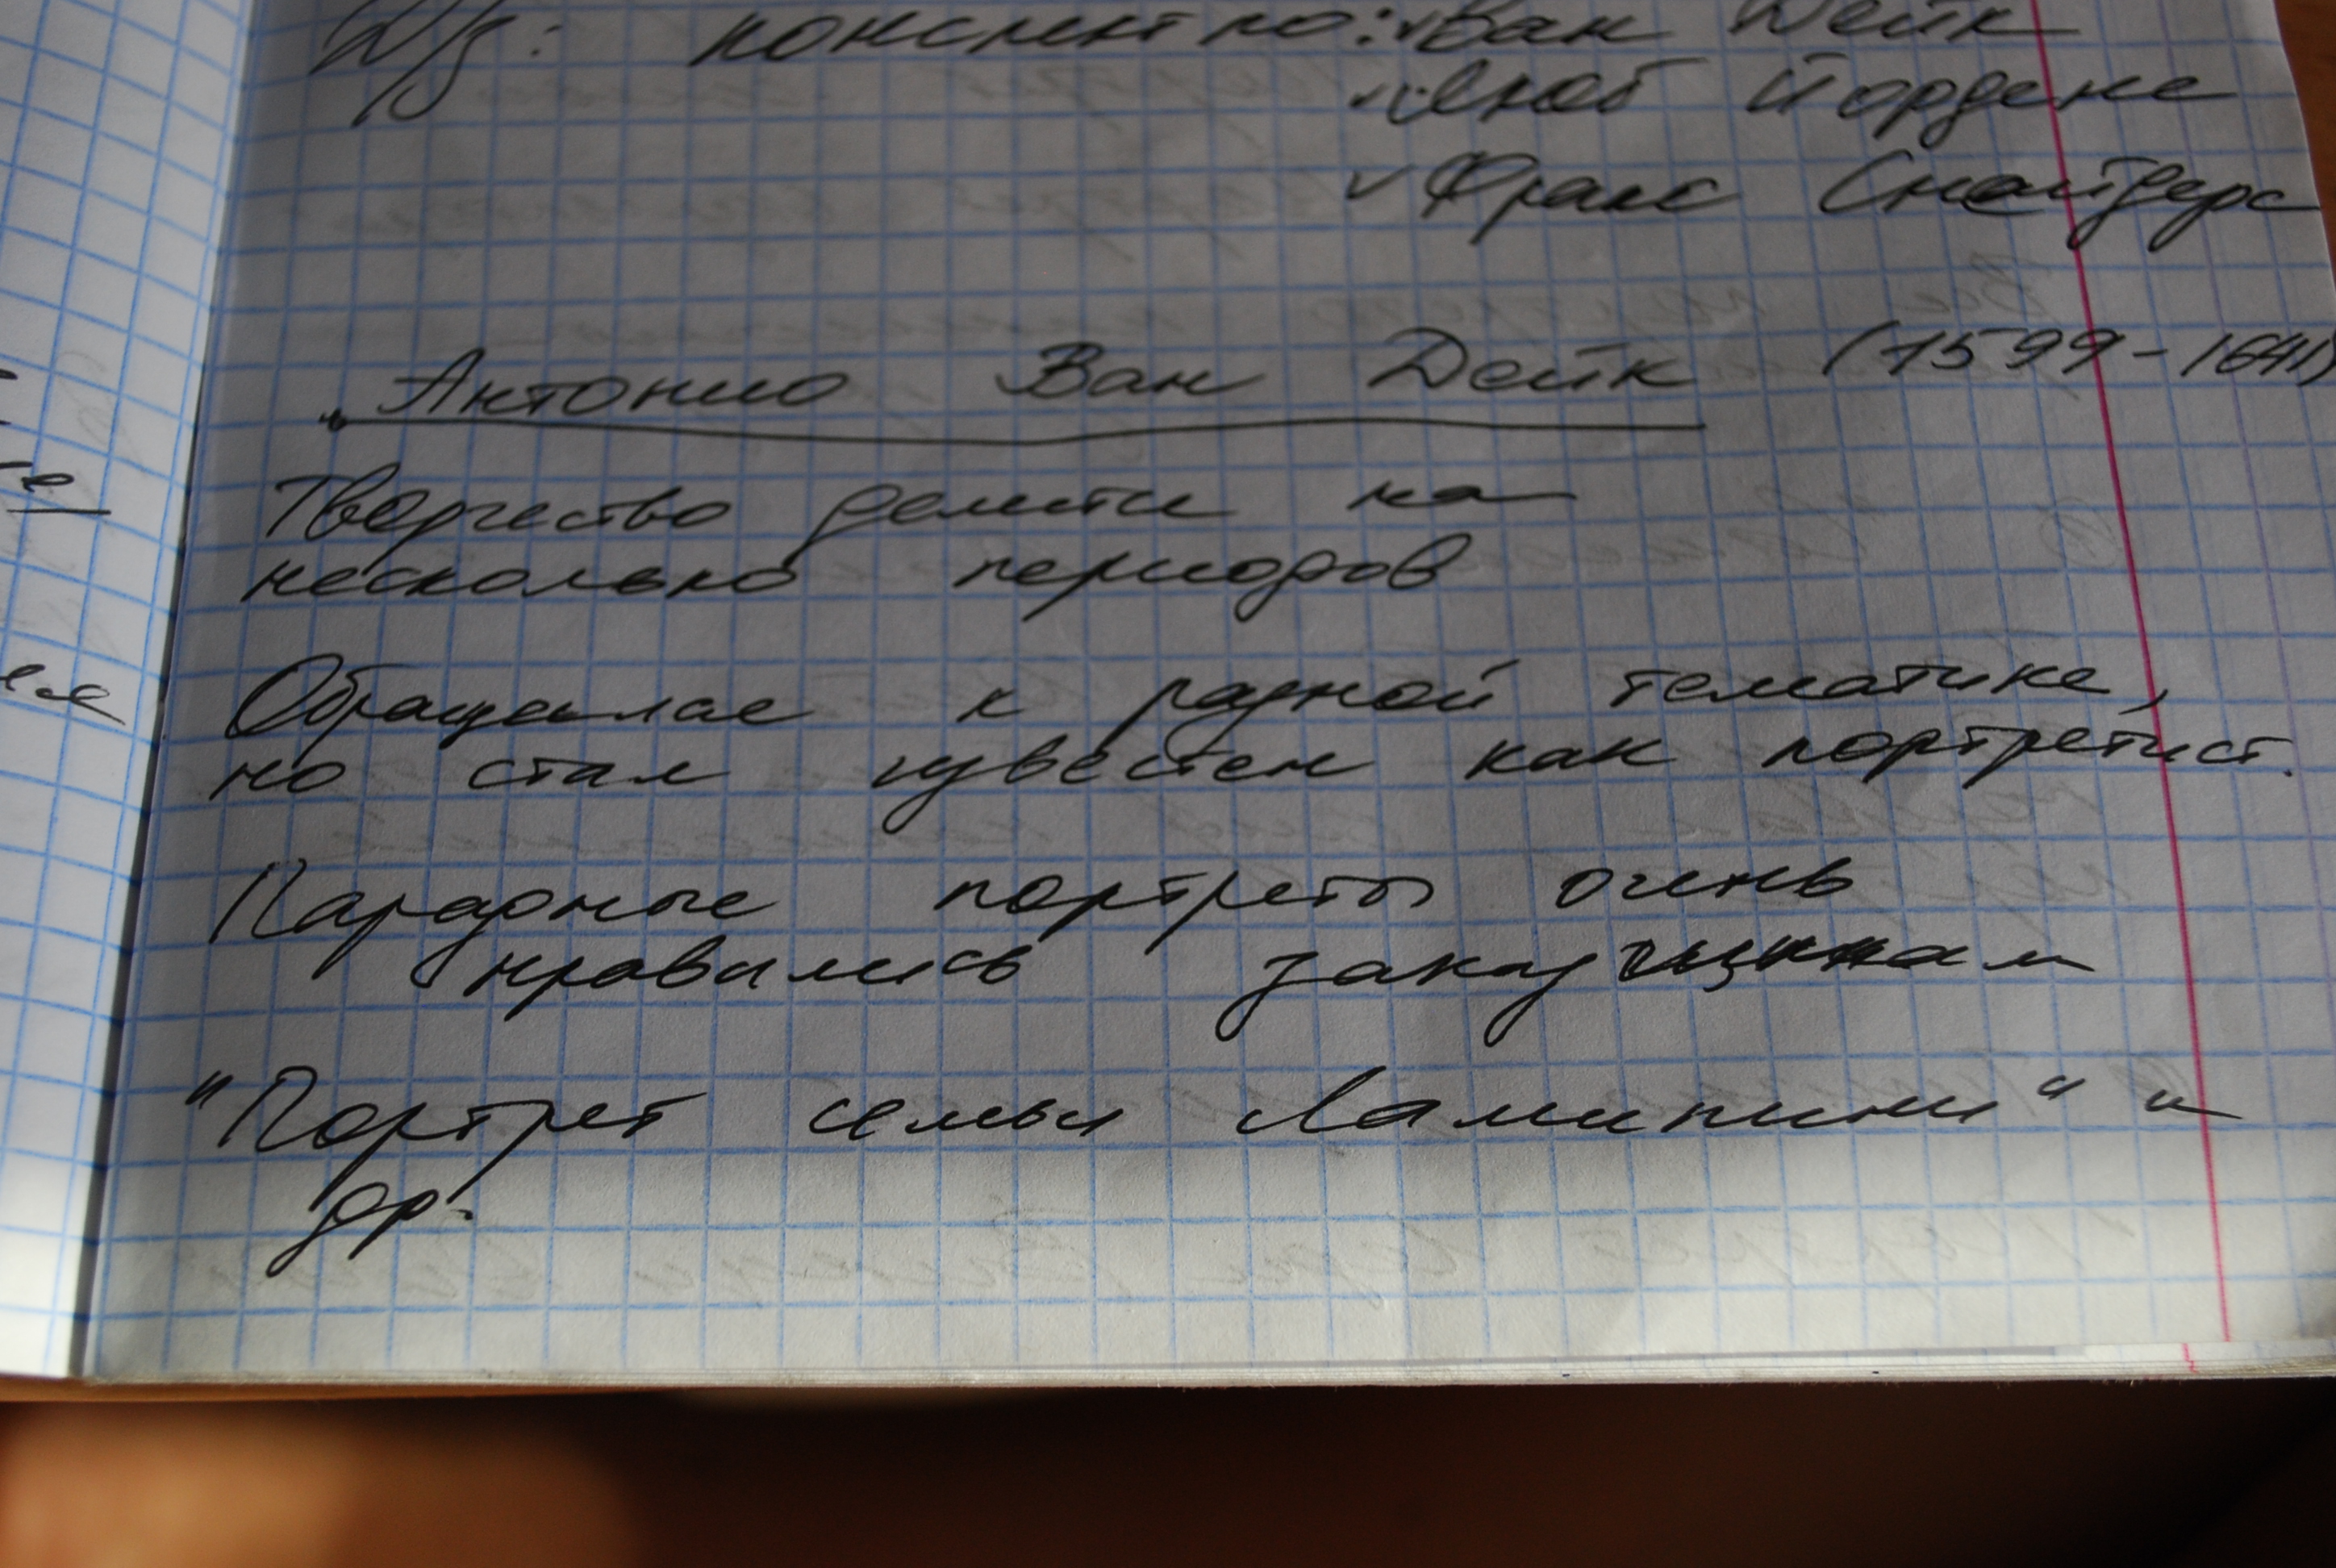 Д/з: конспект по: ✓ Ван Дейк
✓ Якоб Йорденс
✓ Франс Снайдерс
Антонио Ван Дейк (1599-1641)
Творчество делится на
несколько периодов
Обращался к разной тематике,
но стал известен как портретист.
Парадные портреты очень
нравились заказчикам
"Портрет семьи Ломилини" и
др.